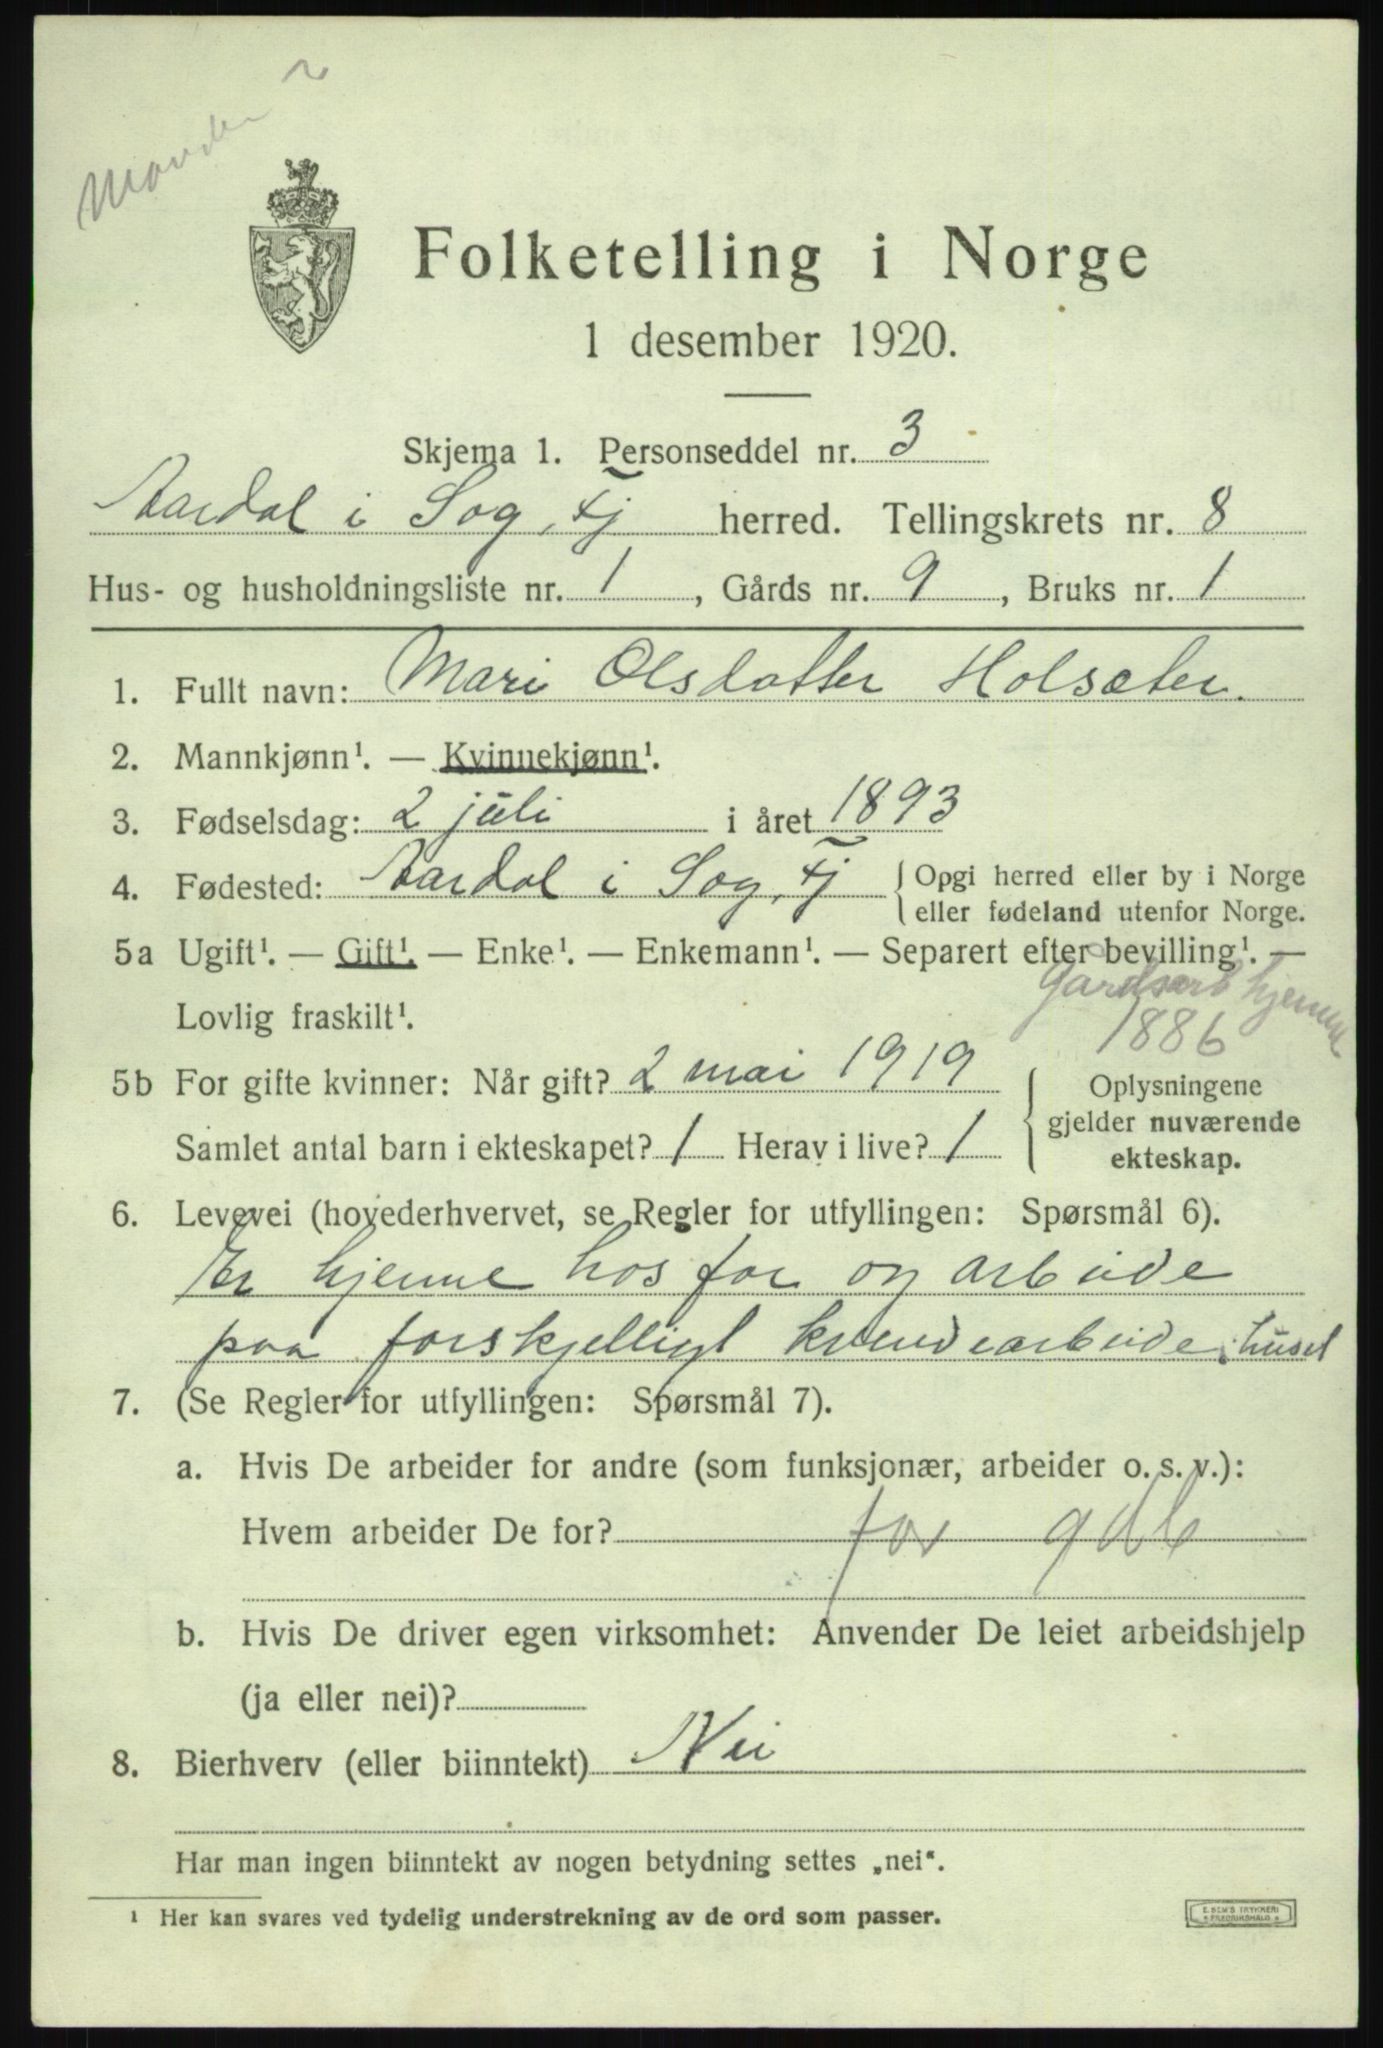 Folketelling i Norge
1 desember 1920.
Skjema 1. Personseddel nr. 3
Aardal i Sogn, Fj herred. Tellingskrets nr. 8
Hus- og husholdningsliste nr. 1, Gårds nr. 9, Bruks nr. 1
1. Fullt navn: Mari Olsdatter Holsæter.
2. Mannkjønn¹. — Kvinnekjønn¹.
3. Fødselsdag: 2 juli i året 1893
4. Fødested: Aardal i Sogn, Fj { Opgi herred eller by i Norge
eller fødeland utenfor Norge.
5a Ugift¹. — Gift¹. — Enke¹. — Enkemann¹. — Separert efter bevilling¹. —
Gårdsarb hjemme
Lovlig fraskilt¹.
1886
5b For gifte kvinner: Når gift? 2 mai 1919 { Oplysningene
gjelder nuværende
Samlet antal barn i ekteskapet? 1 Herav i live? 1
ekteskap.
6. Levevei (hovederhvervet, se Regler for utfyllingen: Spørsmål 6).
Er hjemme hos far og arbeide
paa forskjelligt kvindearbeide i huset
7. (Se Regler for utfyllingen: Spørsmål 7).
a. Hvis De arbeider for andre (som funksjonær, arbeider o. s. v.):
Hvem arbeider De for? far gdb
b. Hvis De driver egen virksomhet: Anvender De leiet arbeidshjelp
(ja eller nei)?
8. Bierhverv (eller biinntekt) Nei
Har man ingen biinntekt av nogen betydning settes „nei“.
¹ Her kan svares ved tydelig understrekning av de ord som passer.
E. SEM'S TRYKKERI
FREDRIKSHALD